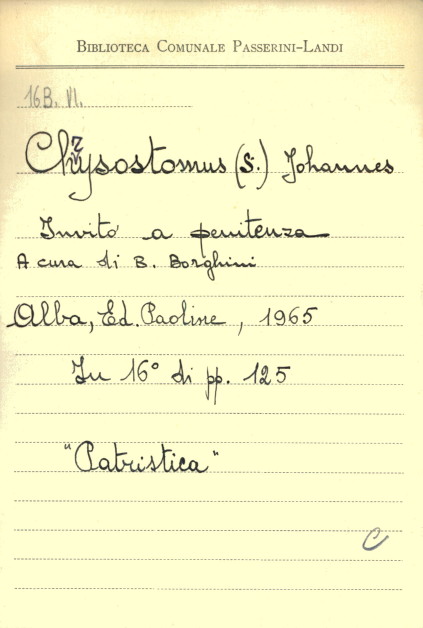 BIBLIOTECA COMUNALE PASSERINI-LANDI
16B. VI.
Chrysostomus (S.) Johannes
Invito a penitenza
A cura di B. Borghini
Alba, Ed. Paoline, 1965
In 16° di pp. 125
"Patristica"
C